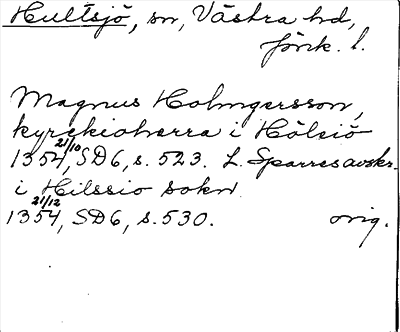 Hultsjö, sn, Västra hd,
Jönk. l.
Magnus Holmgersson,
kyrkioherra i Hölsiö
1354 21/10, SD6, s. 523. L. Sparres avskr.
i Hilssio sokn
1354 21/12, SD6, s. 530. orig.